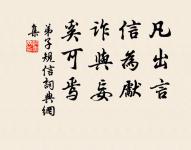 凡出言
信為獻
詐與妄
奚可焉
弟子規信詞典網
集